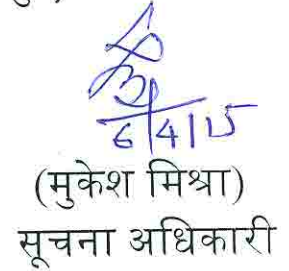 6/4/15
(मुकेश मिश्रा)
सूचना अधिकारी